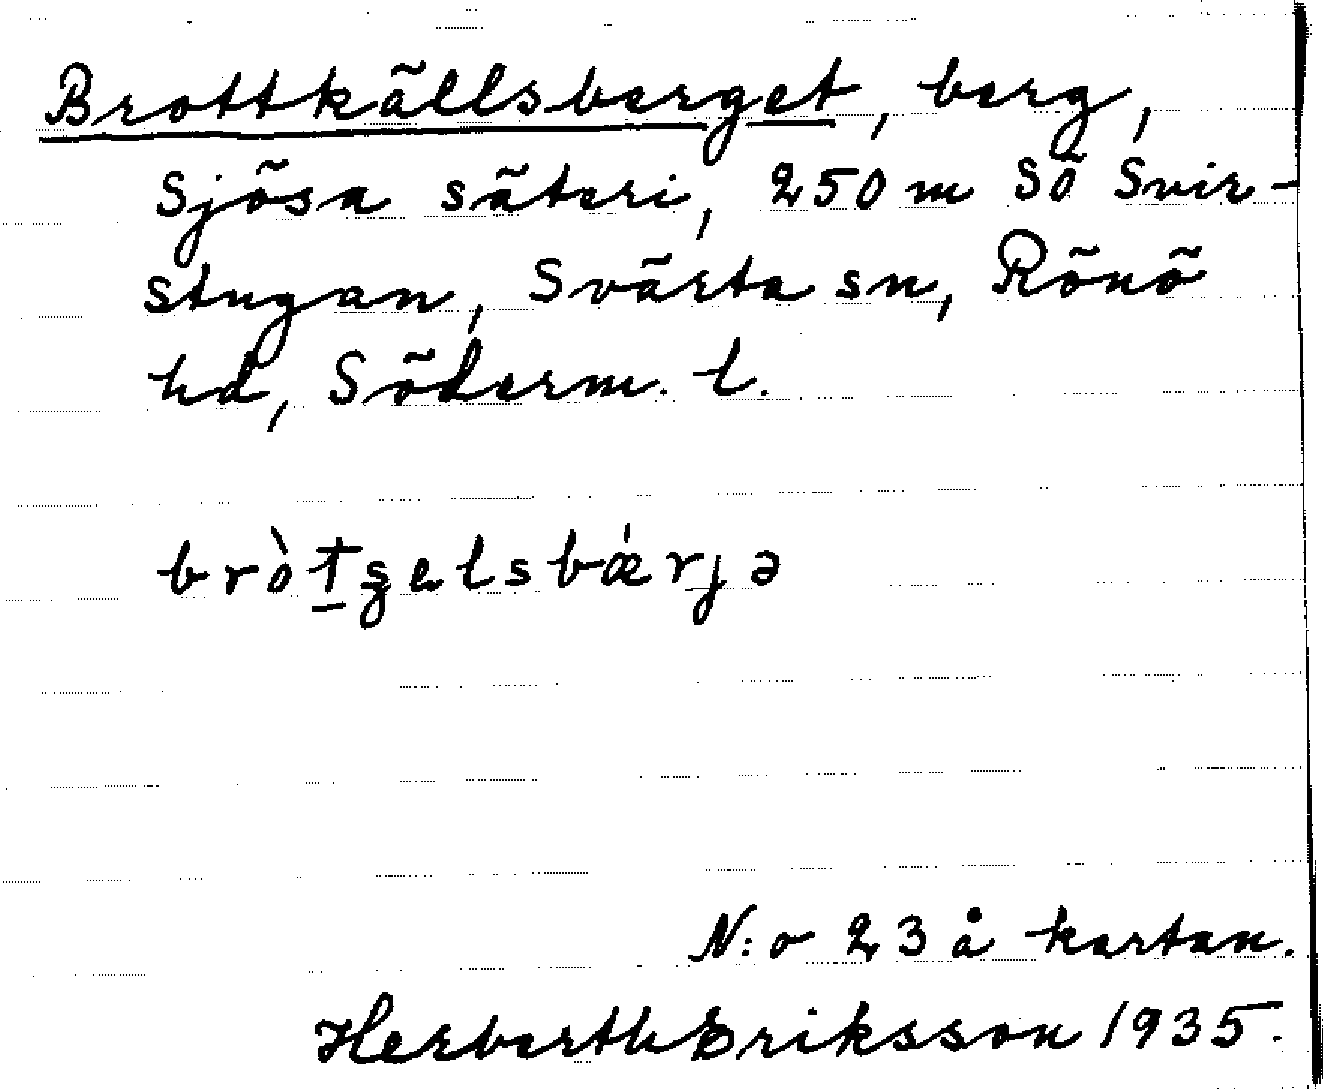 Brottkällsberget, berg,
Sjösa säteri, 250 m SÖ Svir-
stugan, Svärta sn, Rönö
hd, Söderm. l.
bròt̲ʂelsbǽrjə
N:o 23 å kartan.
Herberth Eriksson 1935.